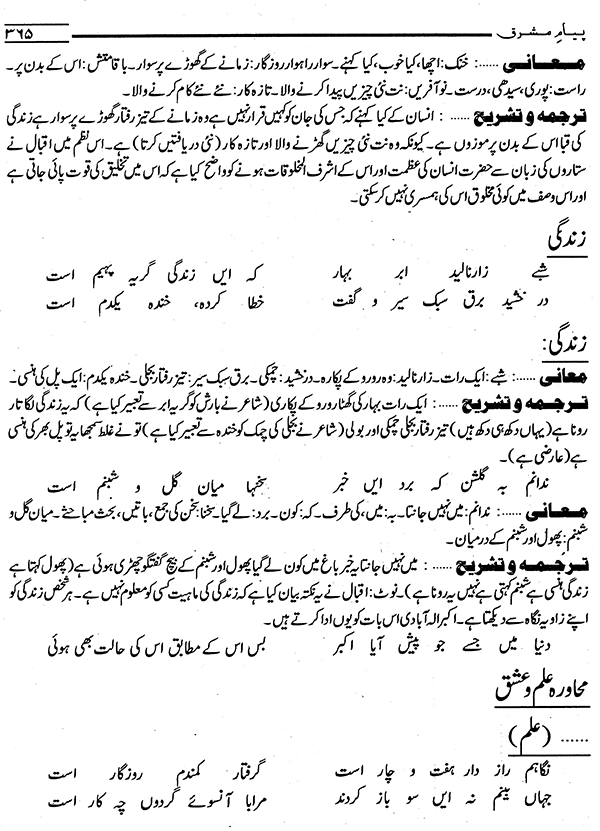 پیامِ مشرق ۳۶۵
معانی ......: خنک: اچھا، کیا خوب، کیا کہنے۔ سوار راہوار روزگار: زمانے کے گھوڑے پر سوار۔ باقامتش: اس کے بدن پر۔
راست: پوری، سیدھی، درست۔ نو آفریں: نت نئی چیزیں پیدا کرنے والا۔ تازہ کار: نئے نئے کام کرنے والا۔
ترجمہ و تشریح ......: انسان کے کیا کہنے کہ جس کی جان کو کہیں قرار نہیں ہے وہ زمانے کے تیز رفتار گھوڑے پر سوار ہے زندگی
کی قبا اس کے بدن پر موزوں ہے۔ کیونکہ وہ نت نئی چیزیں گھڑنے والا اور تازہ کار (نئی دریافتیں کرتا) ہے۔ اس نظم میں اقبال نے
ستاروں کی زبان سے حضرت انسان کی عظمت اور اس کے اشرف المخلوقات ہونے کو واضح کیا ہے کہ اس میں تخلیق کی قوت پائی جاتی ہے
اور اس وصف میں کوئی مخلوق اس کی ہمسری نہیں کر سکتی۔
زندگی
شبے زار نالید ابر بہار کہ ایں زندگی گریہ پیہم است
درخشید برق سبک سیر و گفت خطا کردہ، خندہ یکدم است
زندگی:
معانی ......: شبے: ایک رات۔ زار نالید: وہ رو رو کے پکارہ۔ درخشید: چمکی۔ برق سبک سیر: تیز رفتار بجلی۔ خندہ یکدم: ایک پل کی ہنسی۔
ترجمہ و تشریح ......: ایک رات بہار کی گھٹا رو رو کے پکاری (شاعر نے بارش کو گریہ ابر سے تعبیر کیا ہے) کہ یہ زندگی لگاتار
رونا ہے (یہاں دکھ ہی دکھ ہیں) تیز رفتار بجلی چمکی اور بولی (شاعر نے بجلی کی چمک کو خندہ سے تعبیر کیا ہے) تو نے غلط سمجھا یہ تو پل بھر کی ہنسی
ہے (عارضی ہے)۔
ندانم بہ گلشن کہ برد ایں خبر سخنہا میان گل و شبنم است
معانی ......: ندانم: میں نہیں جانتا۔ بہ: میں، کی طرف۔ کہ: کون۔ برد: لے گیا۔ سخنا: سخن کی جمع، باتیں، بحث مباحثے۔ میان گل و
شبنم: پھول اور شبنم کے درمیان۔
ترجمہ و تشریح ......: میں نہیں جانتا یہ خبر باغ میں کون لے گیا پھول اور شبنم کے بیچ گفتگو چھڑی ہوئی ہے (پھول کہتا ہے
زندگی ہنسی ہے شبنم کہتی ہے نہیں یہ رونا ہے)۔ نوٹ: اقبال نے یہ نکتہ بیان کیا ہے کہ زندگی کی ماہیت کسی کو معلوم نہیں ہے۔ ہر شخص زندگی کو
اپنے زاویہ نگاہ سے دیکھتا ہے۔ اکبر الہ آبادی اس بات کو یوں ادا کرتے ہیں۔
دنیا میں جسے جو پیش آیا اکبر بس اس کے مطابق اس کی حالت بھی ہوئی
محاورہ علم و عشق
...... (علم)
نگاہم راز دار ہفت و چار است گرفتار کمندم روزگار است
جہاں بینم نہ ایں سو باز کردند مرابا آنسوئے گردوں چہ کار است